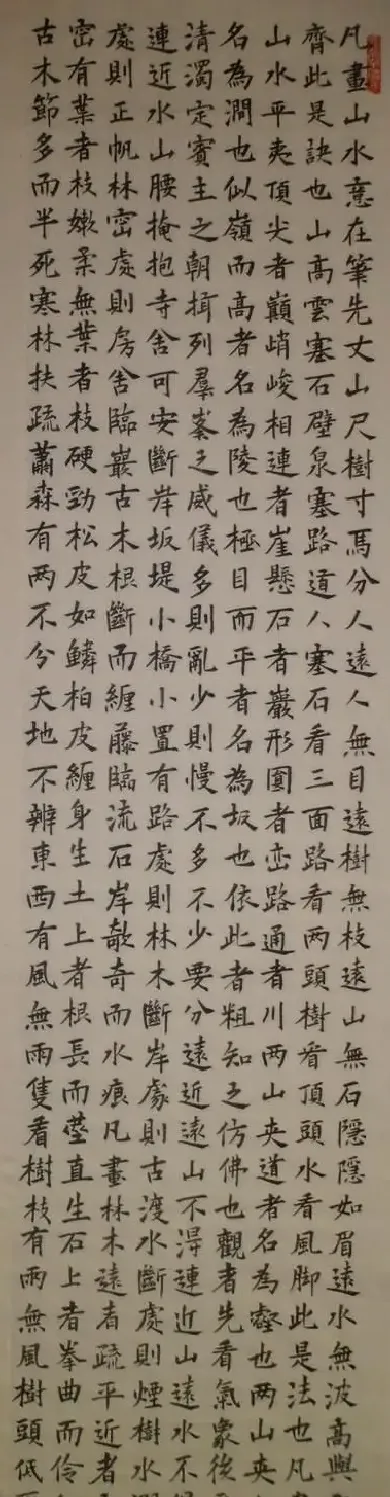 凡畫山水意在筆先丈山尺樹寸馬分人遠人無目遠樹無枝遠山無石隱隱如眉遠水無波高與
齊此是訣也山高雲塞石壁泉塞路道人塞石看三面路看两頭樹看頂頭水看風脚此是法也凡
山水平夷頂尖者巔峭峻相連者崖懸石者巖形圓者峦路通者川两山夾道者名為壑也两山夾
名為澗也似嶺而高者名為陵也極目而平者名為坂也依此者粗知之仿佛也觀者先看氣象後
清濁定賓主之朝揖列羣峯之威儀多則亂少則慢不多不少要分遠近遠山不淂連近山遠水不
連近水山腰掩抱寺舍可安斷岸坂堤小橋小置有路處則林木斷岸處則古渡水斷處則煙樹水
處則正帆林密處則房舍臨巖古木根斷而纏藤臨流石岸欹奇而水痕凡畫林木遠者疏平近者
密有葉者枝嫩柔無葉者枝硬勁松皮如鱗柏皮纏身生土上者根長而莖直生石上者拳曲而伶
古木節多而半死寒林扶疏蕭森有两不兮天地不辨東西有風無雨隻看樹枝有雨無風樹頭低